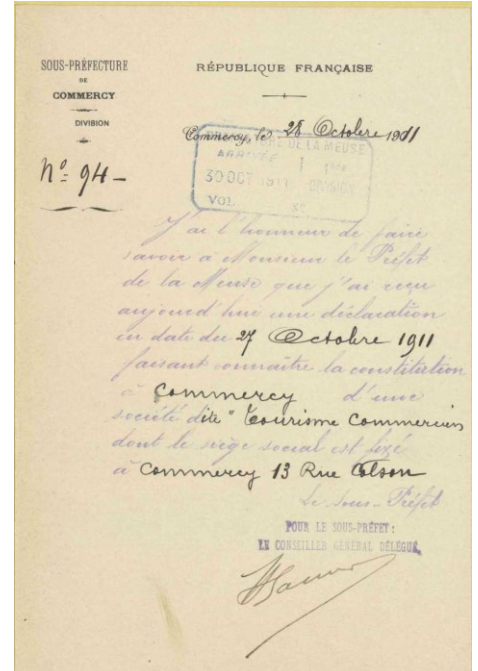 SOUS-PRÉFECTURE
DE
COMMERCY
DIVISION
Nº 94 -
RÉPUBLIQUE FRANÇAISE
Commercy, le 28 Octobre 1911
PRÉFECTURE DE LA MEUSE
ARRIVÉE 1ère
30 OCT 1911 DIVISION
VOL. Nº
J'ai l'honneur de faire
savoir à Monsieur le Préfet
de la Meuse que j'ai reçu
aujourd'hui une déclaration
en date du 27 Octobre 1911
faisant connaître la constitution
à Commercy d'une
société dite " Tourisme Commercien
dont le siège social est fixé
à Commercy 13 Rue Colson
Le Sous-Préfet
POUR LE SOUS-PRÉFET :
LE CONSEILLER GÉNÉRAL DÉLÉGUÉ,